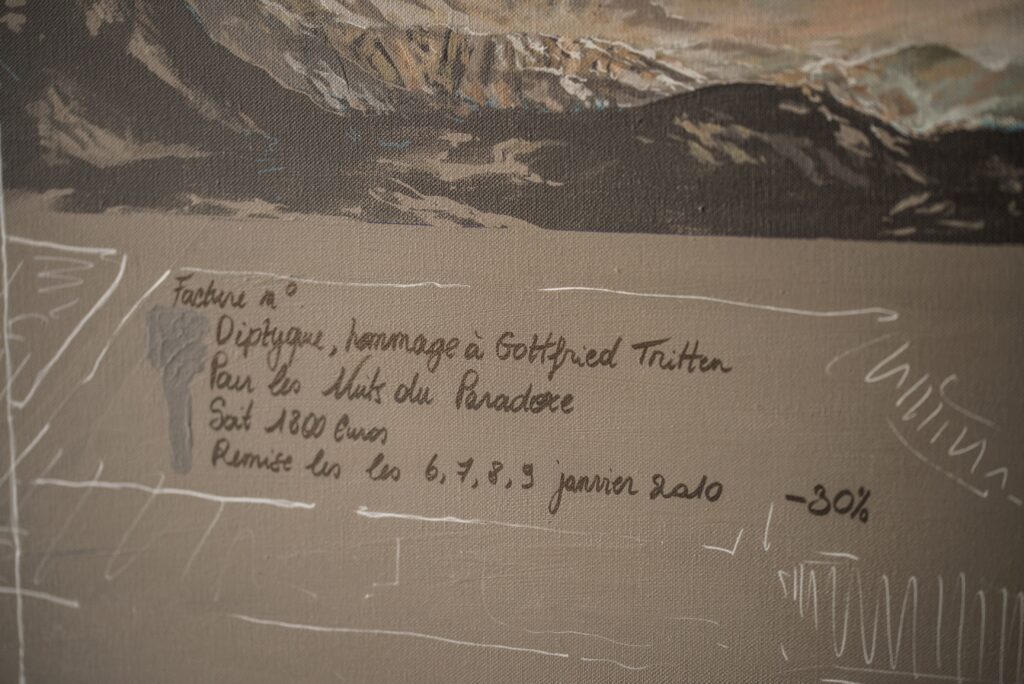 Facture n°
Diptyque, hommage à Gottfried Tritten
Pour les Nuits du Paradoxe
Soit 1800 Euros
Remise les les 6, 7, 8, 9 janvier 2010 -30%